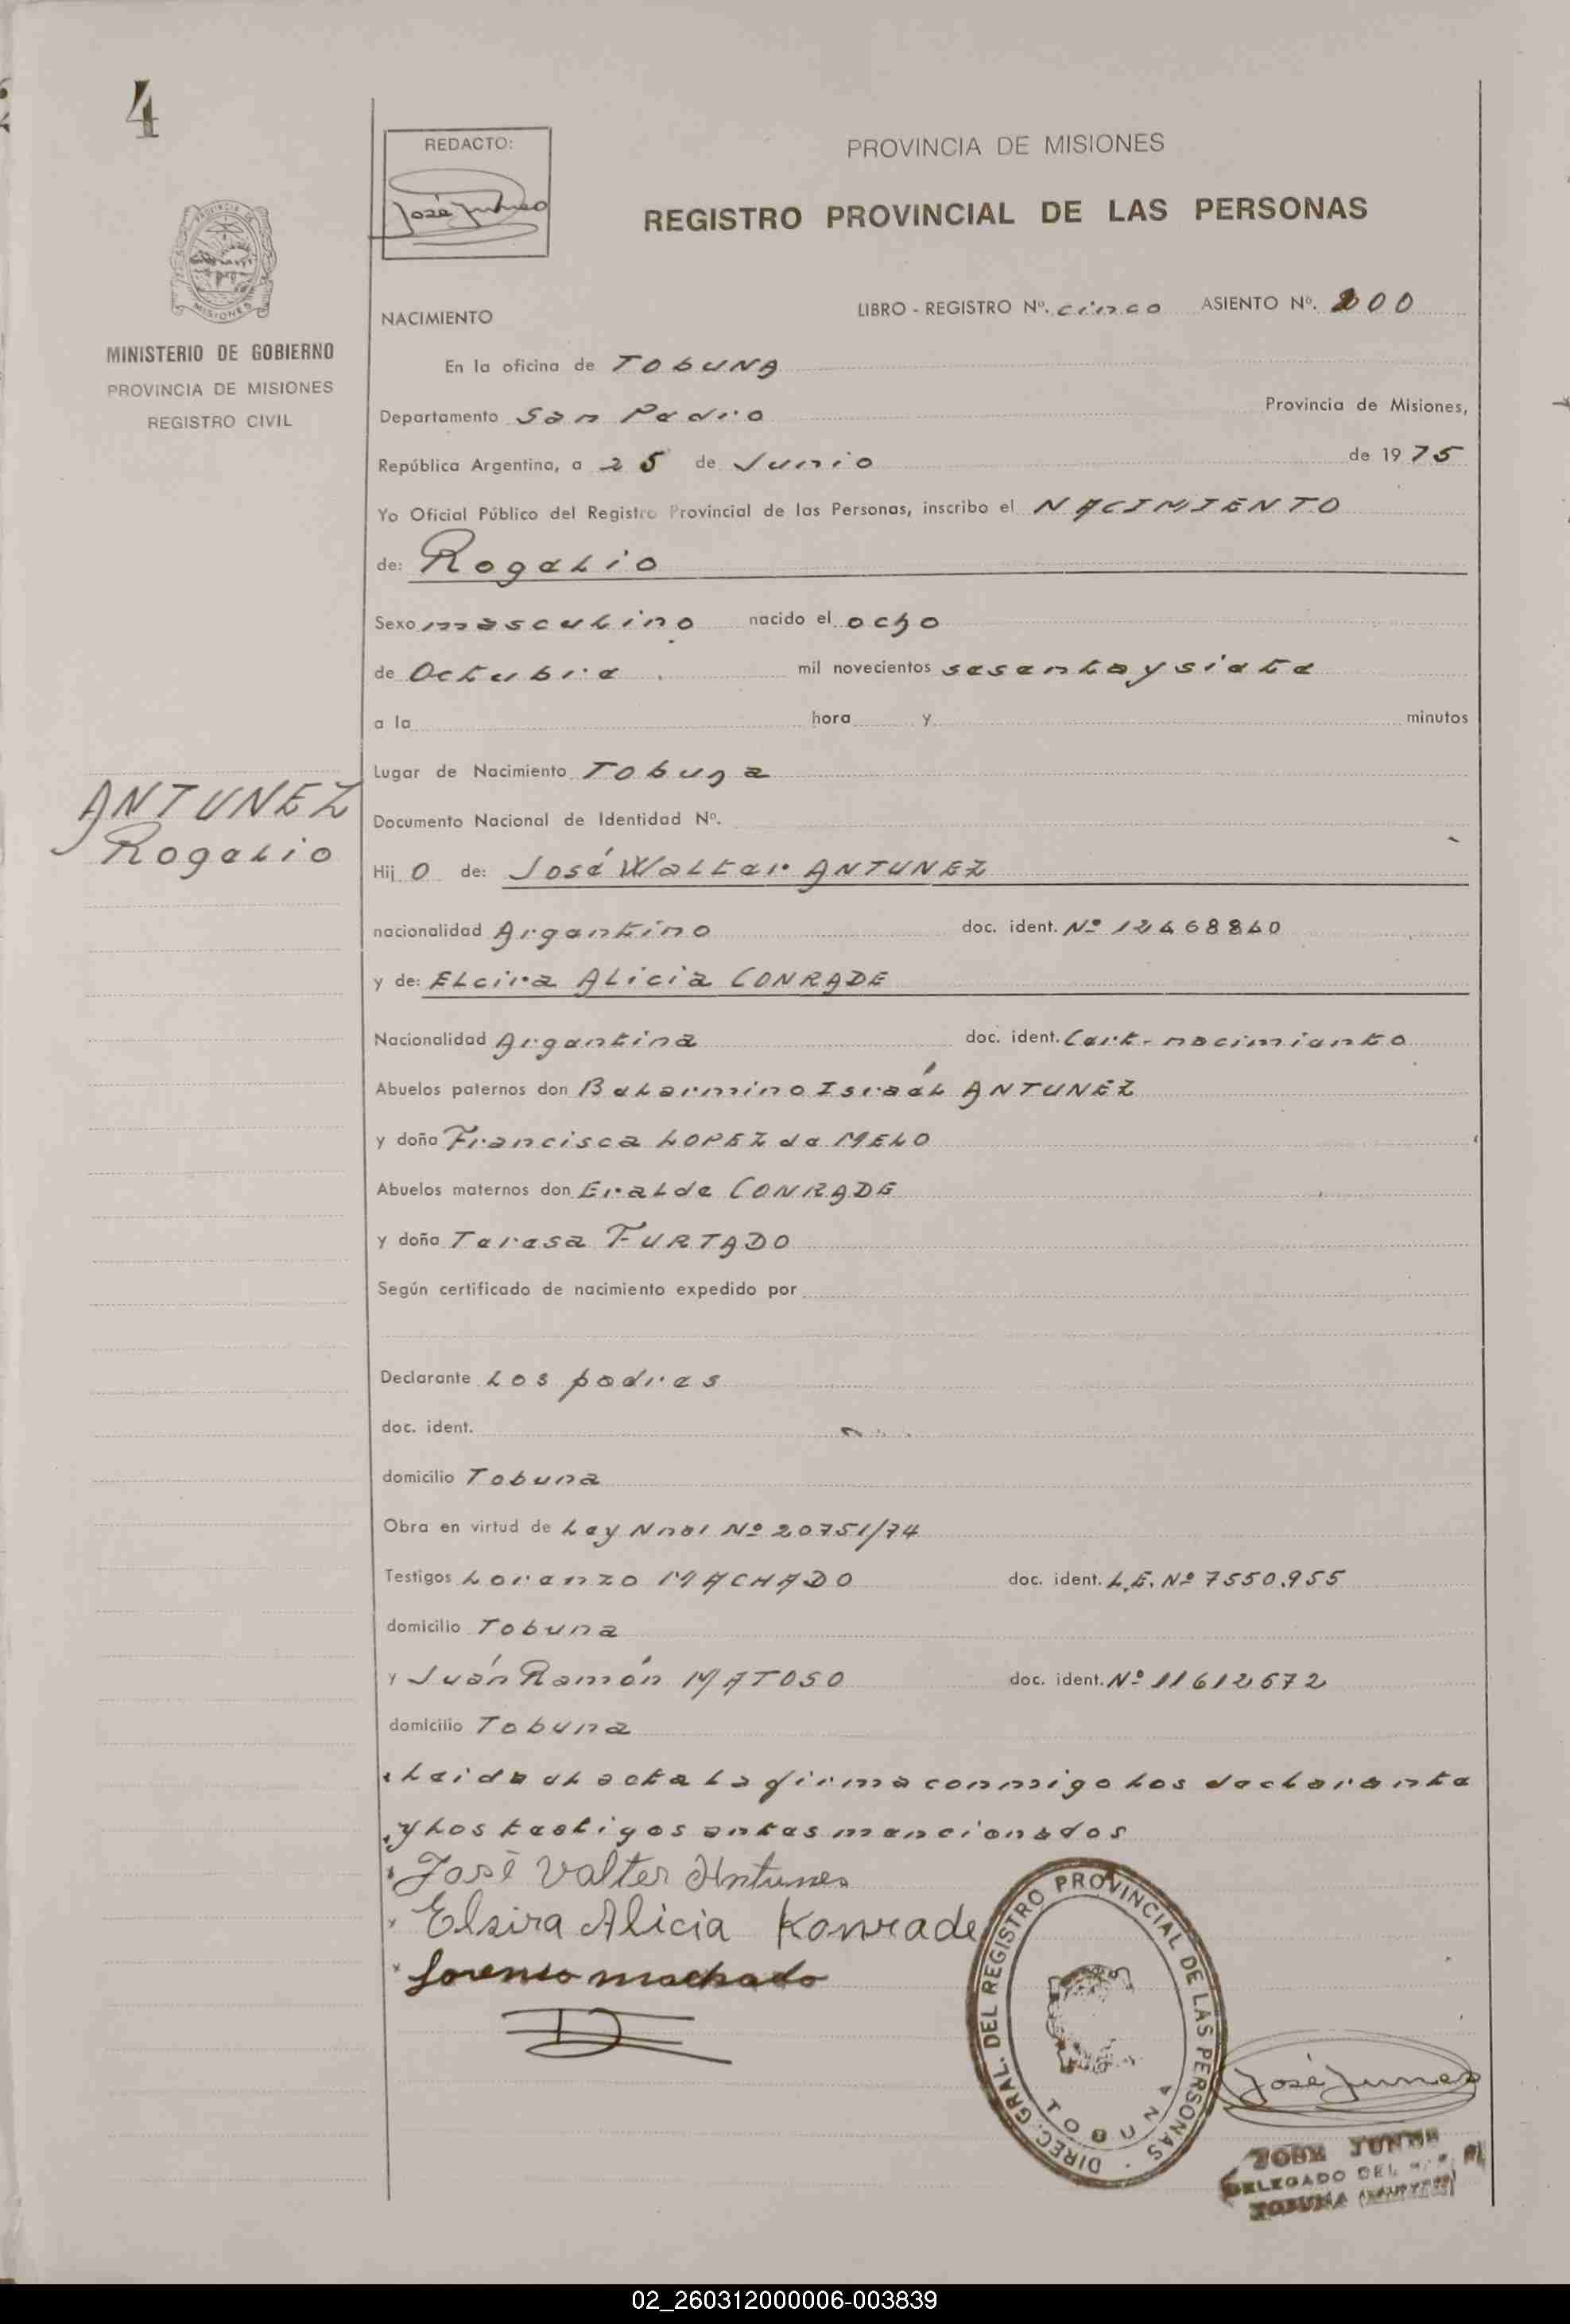 4
REDACTO:
PROVINCIA DE MISIONES
REGISTRO PROVINCIAL DE LAS PERSONAS
NACIMIENTO
LIBRO - REGISTRO Nº. cinco ASIENTO Nº. 200
MINISTERIO DE GOBIERNO
PROVINCIA DE MISIONES
REGISTRO CIVIL
En la oficina de TObUNA
Departamento San Pedro Provincia de Misiones,
República Argentina, a 25 de Junio de 1975
Yo Oficial Público del Registro Provincial de las Personas, inscribo el NACIMIENTO
de: Rogelio
Sexo masculino nacido el ocho
de Octubre mil novecientos sesenta y siete
a la hora y minutos
Lugar de Nacimiento Tobuna
ANTUNEZ
Rogelio
Documento Nacional de Identidad Nº.
Hij o de: José Walter ANTUNEZ
nacionalidad Argentino doc. ident. Nº
y de: Elcira Alicia CONRADE
Nacionalidad Argentina doc. ident. Cert. nacimiento
Abuelos paternos don Belarmino Israél ANTUNEZ
y doña Francisca LOPEZ de MELO
Abuelos maternos don Eralde CONRADE
y doña Teresa FURTADO
Según certificado de nacimiento expedido por
Declarante Los padres
doc. ident.
domicilio Tobuna
Obra en virtud de Ley Nnal Nº 20751/74
Testigos Lorenzo MACHADO doc. ident. L.E. Nº 7550.955
domicilio Tobuna
y Juán Ramón MATOSO doc. ident. Nº 11612672
domicilio Tobuna
Leida el acta la firma conmigo los declarante
y los testigos antes mencionados
José Valter Antunes
Elsira Alicia Konrade
Lorenso machado
DIREC. GRAL. DEL REGISTRO PROVINCIAL DE LAS PERSONAS
TOBUNA
JOSE
DELEGADO DEL
TOBUNA
02_260312000006-003839